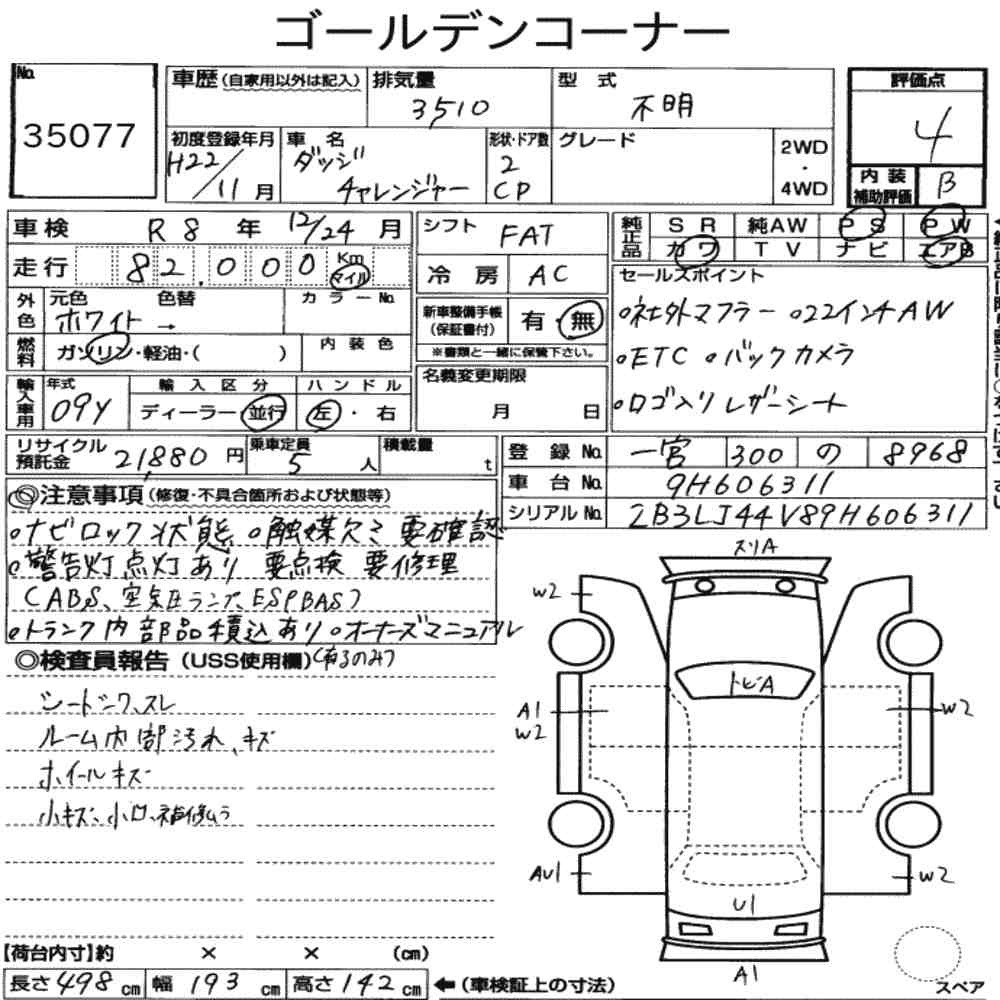 ゴールデンコーナー
No.
35077
車歴 (自家用以外は記入)
排気量
3,510
型 式
不明
評価点
4
初度登録年月
H22/11 月
車 名
ダッジ
チャレンジャー
形状・ドア数
2
CP
グレード
2WD
・
4WD
内 装
補助評価
B
車検 R8 年 12/24 月
走行 82,000 Km
マイル
シフト FAT
冷 房 AC
純正品
S R 純AW P S P W
カ ワ T V ナ ビ エアB
外色
元色 色替 カラーNo.
ホワイト →
燃料
ガソリン・軽油・( )
内 装 色
新車整備手帳
(保証書付)
有・無
※書類と一緒に保管下さい。
名義変更期限
月 日
セールスポイント
o社外マフラー o22インチAW
oETC oバックカメラ
oロゴ入りレザーシート
輸入車用
年式
09y
輸 入 区 分
ディーラー・並行
ハ ン ド ル
左・右
リサイクル
預託金
21,880 円
乗車定員
5 人
積載量
t
登 録 No. 一宮 300 の 8968
車 台 No. 9H606311
シリアルNo. 2B3LJ44V89H606311
◎注意事項 (修復・不具合箇所および状態等)
oナビロック状態 o触媒欠ミ 要確認
o警告灯点灯あり 要点検 要修理
(ABS、空気圧ランプ、ESPBAS)
oトランク内部品積込あり oオーナーズマニュアル
(有るのみ)
◎検査員報告 (USS使用欄)
シートシワ、スレ
ルーム内部汚れ、キズ
ホイールキズ
小キズ、小凹、補修ムラ
スリA
W2
トビA
A1
W2
W2
AU1
W2
U1
A1
スペア
【荷台内寸】約 × × (cm)
長さ 498 cm 幅 193 cm 高さ 142 cm ←(車検証上の寸法)